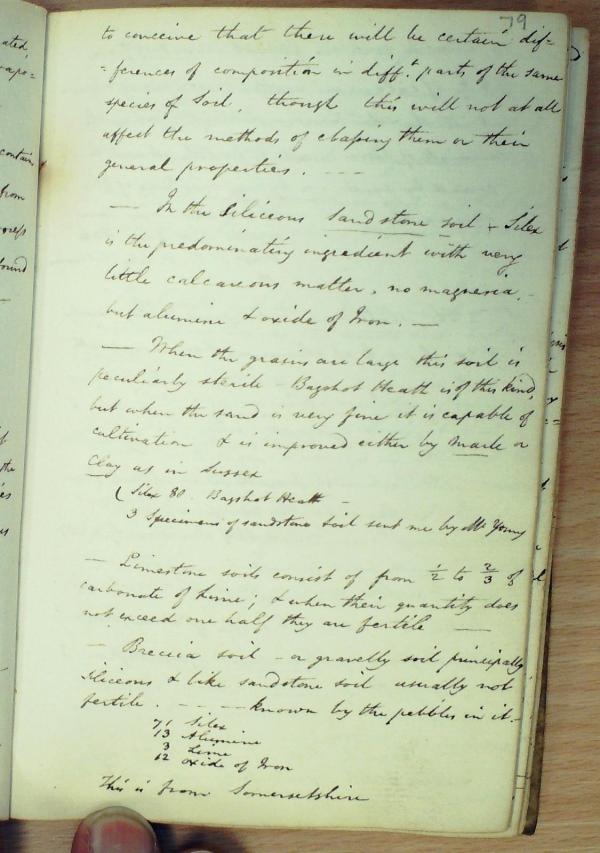 79
to conceive that there will be certain dif=
=ferences of composition in difft. parts of the same
species of Soil, though this will not at all
affect the methods of classing them or their
general properties. - - -
— In the Siliceous Sandstone soil + Silex
is the predominating ingredient with very
little calcareous matter, no magnesia, -
but alumine & oxide of Iron. —
— When the grains are large this soil is
peculiarly sterile - Bagshot Heath is of this kind,
but when the sand is very fine it is capable of
cultivation & is improved either by marle or
Clay as in Sussex
( Silex 80. Bagshot Heath -
3 Specimens of sandstone soil sent me by Mr Young
— Limestone soils consist of from 1/2 to 2/3 of
carbonate of Lime; & when their quantity does
not exceed one half they are fertile —
— Breccia soil - or gravelly soil principally
siliceous & like sandstone soil usually not
fertile. - - - - known by the pebbles in it. -
71 Silex
13 Alumine
3 Lime
12 oxide of Iron
This is from Somersetshire
ated,
contain
from
found
the